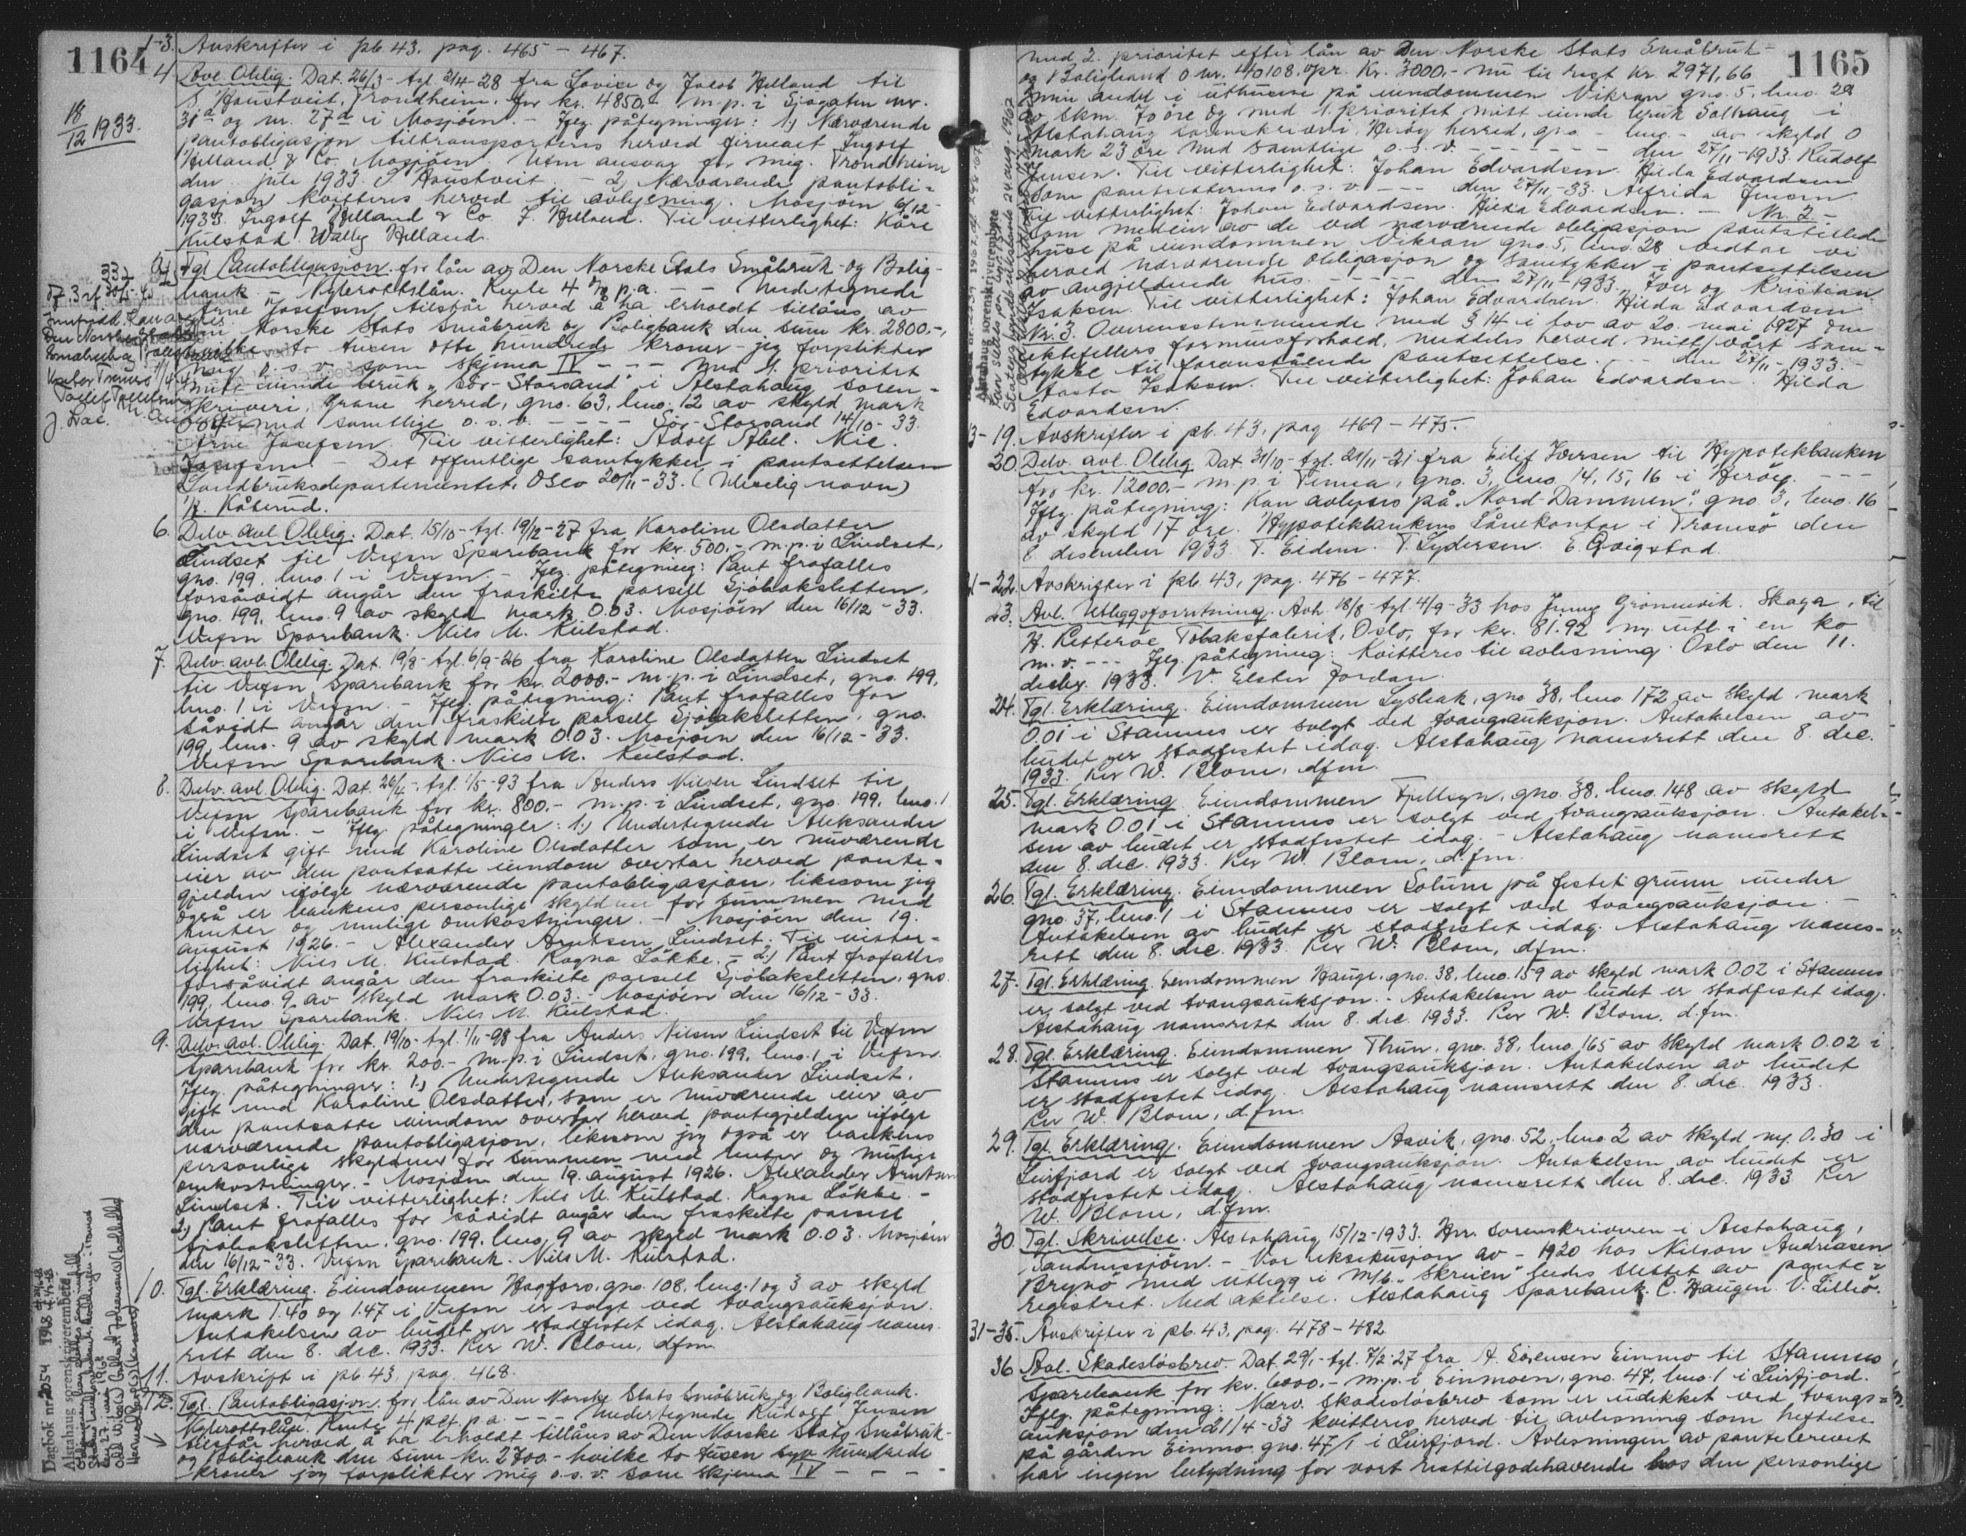 1164
18/12 1933.
1-3. Avskrifter i pb. 43, pag. 465 - 467.
4. Avl. Oblig. Dat. 26/3 - tgl. 2/4-28 fra Lovise og Jacob Helland til
S. Haustveit, Trondheim, for kr. 4850,- m. p. i Sjøgaten nr.
31a og nr. 27d i Mosjøen. - Iflg. påtegninger: 1.) Nærværende
pantobligasjon tiltransporteres herved firmaet Ingolf
Helland & Co. Mosjøen uten ansvar for mig. Trondheim
den juli 1933. S. Haustveit. - 2.) Nærværende pantobli-
gasjon kvitteres herved til avlysning. Mosjøen 6/12-
1933. Ingolf Helland & Co. J. Helland. Til vitterlighet: Kåre
Kulstad. Wally Helland.
5. Tgl. Pantobligasjon for lån av Den Norske Stats Småbruk- og Bolig-
bank - Nybrottslån. Rente 4 % p.a. - - - Undertegnede
Arne Josefsen tilstår herved å ha erholdt tillåns av
Den Norske Stats Småbruk og Boligbank den sum kr. 2800.-,
hvilke to tusen otte hundrede kroner - jeg forplikter
mig o. s. v. som skjema IV - - - med 1. prioritet
mitt eiende bruk "Sør-Storsand" i Alstahaug soren-
skriveri, Grane herred, gno. 63, bno. 12 av skyld mark
med samtlige o. s. v. - - - - - Sør-Storsand 14/10-33.
Arne Josefsen. Til vitterlighet: Adolf Abel. Nic.
Josefsen. - Det offentlige samtykker i pantsettelsen
Landbruksdepartementet, Oslo 20/11-33. (Ulæselig navn)
Kåberud.
6. Delv. avl. Oblig. Dat. 15/10 - tgl. 19/12-27 fra Karoline Olsdatter
Lindset til Vefsn Sparebank for kr. 500.- m. p. i Lindset,
gno. 199, bno. 1 i Vefsn. - Iflg. påtegning: Pant frafalles
forsåvidt angår den fraskilte parsell Sjøbaksletten,
gno. 199, bno. 9 av skyld mark 0.03. Mosjøen den 16/12-33.
Vefsn Sparebank. Nils M. Kulstad.
7. Delv. avl. Oblig. Dat. 19/8 - tgl. 6/9-26 fra Karoline Olsdatter Lindset
til Vefsn Sparebank for kr. 2000.- m. p. i Lindset, gno. 199,
bno. 1 i Vefsn. - Iflg. påtegning: Pant frafalles for
såvidt angår den fraskilte parsell Sjøbaksletten, gno.
199, bno. 9 av skyld mark 0.03. Mosjøen den 16/12-33.
Vefsn Sparebank. Nils M. Kulstad.
8. Delv. avl. Oblig. Dat. 26/4 - tgl. 1/5-93 fra Anders Nilsen Lindset til
Vefsn Sparebank for kr. 800.- m. p. i Lindset, gno. 199, bno. 1
i Vefsn. - Iflg. påtegninger: 1.) Undertegnede Aleksander
Lindset gift med Karoline Olsdatter som er nuværende
eier av den pantsatte eiendom overtar herved pante-
gjelden ifølge nærværende pantobligasjon, likesom jeg
også er bankens personlige skyldner for summen med
renter og mulige omkostninger. - Mosjøen den 19.
august 1926. - Alexander Arntsen Lindset. Til vitter-
lighet: Nils M. Kulstad. Ragna Løkke. - 2.) Pant frafalles
forsåvidt angår den fraskilte parsell Sjøbaksletten, gno.
199, bno. 9 av skyld mark 0.03. - Mosjøen den 16/12-33.
Vefsn Sparebank. Nils M. Kulstad.
9. Delv. avl. Oblig. Dat. 19/10 - tgl. 1/11-98 fra Anders Nilsen Lindset til Vefsn
Sparebank for kr. 200.- m. p. i Lindset, gno. 199, bno. 1 i Vefsn.
Iflg. påtegninger: 1.) Undertegnede Aleksander Lindset,
gift med Karoline Olsdatter, som er nuværende eier av
den pantsatte eiendom overtar herved pantegjelden ifølge
nærværende pantobligasjon, likesom jeg også er bankens
personlige skyldner for summen med renter og mulige
omkostninger. - Mosjøen den 19. august 1926. Alexander Arntsen
Lindset. Til vitterlighet: Nils M. Kulstad. Ragna Løkke. -
2.) Pant frafalles for såvidt angår den fraskilte parsell
Sjøbaksletten, gno. 199, bno. 9 av skyld mark 0.03. Mosjøen
den 16/12-33. Vefsn Sparebank. Nils M. Kulstad.
10. Tgl. Erklæring. Eiendommen Hagfors, gno. 108, bno. 1 og 3 av skyld
mark 1.40 og 1.47 i Vefsn er solgt ved tvangsauksjon.
Antakelsen av budet er stadfestet idag. Alstahaug nams-
rett den 8. dec. 1933. Per W. Blom, dfm.
11. Avskrift i pb. 43, pag. 468.
12. Tgl. Pantobligasjon for lån av Den Norske Stats Småbruk og Boligbank.
Nybrottslån. Rente 4 pct p.a. - - - Undertegnede Rudolf Jensen
tilstår herved å ha erholdt tillåns av Den Norske Stats Småbruk-
og Boligbank den sum kr. 2700.- hvilke to tusen syv hundrede
kroner jeg forplikter mig o. s. v. som skjema IV - - -
Dagbok nr. 2054 1968
Alstahaug sorenskriverembete
1165
med 2. prioritet efter lån av Den Norske Stats Småbruk-
og Boligbank o nr. 40108. opr. kr. 3000.- nu til rest kr. 2971,66
min andel i uthusene på eiendommen Vikran gno. 5, bno. 28
av skm. 70 øre og med 1. prioritet mitt eiende bruk Solhaug i
Alstahaug sorenskriveri, Herøy herred, gno. - bno. - av skyld 0
mark 23 øre med samtlige o. s. v. - - - - - den 27/11-1933. Rudolf
Jensen. Til vitterlighet: Johan Edvardsen. Hilda Edvardsen
Som panthaverens o. s. v. - - - den 27/11-33. Alfrida Jensen.
Til vitterlighet: Johan Edvardsen. Hilda Edvardsen. - Nr. 2 -
Som medeier av de ved nærværende obligasjon pantstillede
huse på eiendommen Vikran gno. 5, bno. 28 vedtar vi
herved nærværende obligasjon og samtykker i pantsettelsen
av angjeldende hus. - - - - den 27/11-1933. Iver og Kristian
Isaksen. Til vitterlighet: Johan Edvardsen. Hilda Edvardsen
Nr. 3. Overensstemmende med § 14 i lov av 20. mai 1927 om
ektefellers formuesforhold, meddeles herved mitt/vårt sam-
tykke til foranstående pantsettelse. - - - den 27/11-1933.
Aasta Isaksen. Til vitterlighet: Johan Edvardsen. Hilda
Edvardsen.
13-19. Avskrifter i pb. 43, pag. 469 - 475.
20. Delv. avl. Oblig. Dat. 31/10 - tgl. 21/11-21 fra Eilif Iversen til Hypotekbanken
for kr. 12000.- m. p. i Tenna, gno. 3, bno. 14, 15, 16 i Herøy. - -
Iflg. påtegning: Kan avlyses på "Nord Dammen", gno 3, bno. 16
av skyld 17 øre. Hypotekbankens Lånekontor i Tromsø den
8. desember 1933. T. Eidem. T. Lydersen. E. Qvigstad.
21-22. Avskrifter i pb. 43, pag. 476 - 477.
23. Avl. Utleggsforretning. Avh. 18/8 tgl. 4/9-33 hos Jenny Grønnevik, Skaga, til
H. Petterøe Tobaksfabrik, Oslo, for kr. 81.92 m. utl. i en ko
m. v. - - - Iflg. påtegning: Kvitteres til avlesning. Oslo den 11.
desbr. 1933. V. Elster Jordan.
24. Tgl. Erklæring. Eiendommen Lysbak, gno 38, bno 172 av skyld mark
0.01 i Stamnes er solgt ved tvangsauksjon. Antakelsen av
budet er stadfestet idag. Alstahaug namsrett den 8. dec.
1933. Per W. Blom, dfm.
25. Tgl. Erklæring. Eiendommen Fjellsyn, gno. 38, bno. 148 av skyld
mark 0.01 i Stamnes er solgt ved tvangsauksjon. Antakel-
sen av budet er stadfestet idag. - Alstahaug namsrett
den 8. dec. 1933. Per W. Blom, d.fm.
26. Tgl. Erklæring. Eiendommen Solum på festet grunn under
gno. 37, bno. 1 i Stamnes er solgt ved tvangsauksjon. -
Antakelsen av budet er stadfestet idag. Alstahaug nams-
rett den 8. dec. 1933. Per W. Blom, dfm.
27. Tgl. Erklæring. Eiendommen Hauge, gno. 38, bno. 159 av skyld mark 0.02 i Stamnes
er solgt ved tvangsauksjon. - Antakelsen av budet er stadfestet idag.
Alstahaug namsrett den 8. dec. 1933. Per W. Blom, d.fm.
28. Tgl. Erklæring. Eiendommen Thun, gno. 38, bno. 165 av skyld mark 0.02 i
Stamnes er solgt ved tvangsauksjon. Antakelsen av budet
er stadfestet idag. Alstahaug namsrett den 8. dec. 1933.
Per W. Blom, d.fm.
29. Tgl. Erklæring. Eiendommen Aasvik, gno. 52, bno 2 av skyld m. 0.30 i
Leirfjord er solgt ved tvangsauksjon. Antakelsen av budet er
stadfestet idag. Alstahaug namsrett den 8. dec. 1933 Per
W. Blom, d.fm.
30. Tgl. Skrivelse. Alstahaug 15/12-1933. Herr sorenskriveren i Alstahaug,
Sandnessjøen. - Vor eksekusjon av - 1920 hos Nilson Andreasen
Brynø med utlegg i M/b. "Skreien" bedes slettet av pante-
registret. Med aktelse. Alstahaug Sparebank. C. Haugen. V. Lillrø.
31-35. Avskrifter i pb. 43, pag. 478 - 482
36. Avl. Skadesløsbrev. Dat. 29/1 - tgl. 7/2-27 fra A. Sørensen Einmo til Stamnes
Sparebank for kr. 6000.- m. p. i Einmoen, gno. 47, bno. 1 i Leirfjord.
Iflg. påtegning: Nærv. skadesløsbrev som er udekket ved tvangs-
auksjon den 21/4-33 kvitteres herved til avlesning som heftelse
på gården Einmo gno. 47/1 i Leirfjord. Avlesningen av pantebrevet
har ingen betydning for vort resttilgodehavende hos den personlige